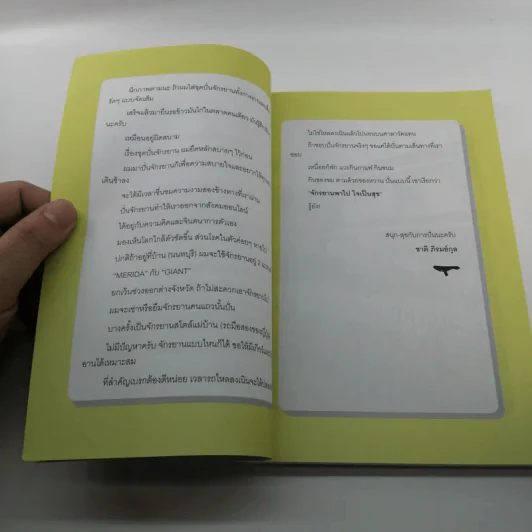 นึกภาพตามนะ ถ้าผมใส่ชุดปั่นจักรยาน
รัดๆ แบบจัดเต็ม
เสร็จแล้วมายืนรอข้าวมันไก่ในตลาดคนเดียว
นะครับ
เหมือนอยู่ผิดสนาม
เรื่องชุดปั่นจักรยาน ผมยึดหลักสบายๆ ไว้ก่อน
ผมมาปั่นจักรยานก็เพื่อความสบายใจและอยากให้
เดินช้าลง
จะได้มีเวลาชื่นชมความงามสองข้างทางที่เราผ่าน
ปั่นจักรยานทำให้เราออกจากสังคมออนไลน์
ได้อยู่กับความคิดและจินตนาการตัวเอง
มองเห็นโลกใกล้ตัวชัดขึ้น ส่วนโรคในตัวค่อยๆ
ปกติถ้าอยู่ที่บ้าน (นนทบุรี) ผมจะใช้จักรยานอยู่ 2
"MERIDA" กับ "GIANT"
ยกเว้นช่วงออกต่างจังหวัด ถ้าไม่สะดวกเอาจักรยานไป
ผมจะเช่าหรือยืมจักรยานคนแถวนั้นปั่น
บางครั้งเป็นจักรยานสไตล์แม่บ้าน (รถมือสองของญี่ปุ่น
ไม่มีปัญหาครับ จักรยานแบบไหนก็ได้ ขอให้มีเกียร์
อานได้เหมาะสม
ที่สำคัญเบรกต้องดีหน่อย เวลารถไหลลงเนินจะได้
ไม่ใช่ไหลลงเนินแล้วไปนอนบนศาลาวัดแทน
ถ้าชอบปั่นจักรยานจริงๆ ขอแค่ได้ปั่นตามเส้นทางที่เรา
ชอบ
เหนื่อยก็พัก แวะกินกาแฟ กินขนม
กินของชม ตามด้วยของหวาน ปั่นแบบนี้ เขาเรียกว่า
"จักรยานพาไป ใจเป็นสุข"
รู้ยัง
สนุก-สุขกับการปั่นนะครับ
ชาติ ภิรมย์กุล